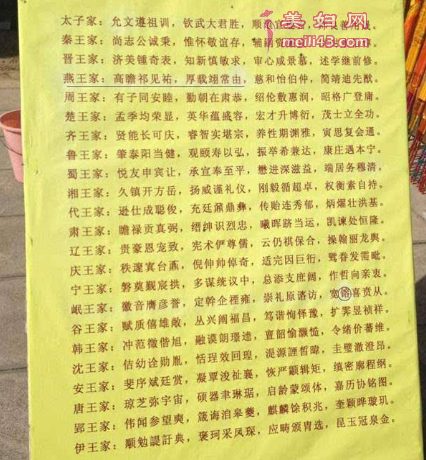 美妇网
www.meili43.com
太子家：允文遵祖训，钦武大君胜，顺
秦王家：尚志公诚秉，惟怀敬谊存，辅
晋王家：济美锺奇表，知新慎敏求，审心咸景慕，述学继前修。
燕王家：高瞻祁见祐，厚载翊常由，慈和怡伯仲，简靖迪先猷。
周王家：有子同安睦，勤朝在肃恭，绍伦敷惠润，昭格广登庸。
楚王家：孟季均荣显，英华蕴盛容，宏才升博衍，茂士立全功。
齐王家：贤能长可庆，睿智实堪宗，养性期渊雅，寅思复会通。
鲁王家：肇泰阳当健，观颐寿以弘，振举希兼达，康庄遇本宁。
蜀王家：悦友申宾让，承宣奉至平，懋进深滋益，端居务穆清。
湘王家：久镇开方岳，扬威谨礼仪，刚毅循超卓，权衡素自持。
代王家：逊仕成聪俊，充廷鼐鼎彝，传贻连秀郁，炳燿壮洪基。
肃王家：瞻禄贡真弼，缙绅识烈忠，曦晖跻当运，凯谏处恒隆。
辽王家：贵豪恩宠致，宪术俨尊儒，云仍祺保合，操翰丽龙舆。
庆王家：秩邃寘台鼒，倪伸帅倬奇，适完因巨衍，鸳眷发需毗。
宁王家：磐奠觐宸拱，多谋统议中，总添支庶阔，作哲向亲衷。
岷王家：徽音膺彦誉，定幹企禋雍，崇礼原谘访，宽镕喜贲从。
谷王家：赋质僖雄敞，丛兴阐福昌，笃谐恂怿豫，扩霁昱祯祥。
韩王家：冲范徵偕旭，融谟朗璟逵，亶韶愉灏慥，令绪价蕃维。
沈王家：佶幼诠勋胤，恬珵效回瑝，湜源諲晢暐，圭璧澈澄昂。
安王家：斐序斌廷赏，凝覃浚祉襄，恢严颛辑矩，缜密廓程纲。
唐王家：琼芝弥宇宙，硕器聿琳琚，启龄蒙颂体，嘉历协铭图。
郢王家：伟闻参望奭，箴诲洎皋夔，麒麟馀积兆，奎颖晔璇玑。
伊王家：颙勉諟訏典，褒珂采凤琛，应畴颁胄选，昆玉冠泉金。